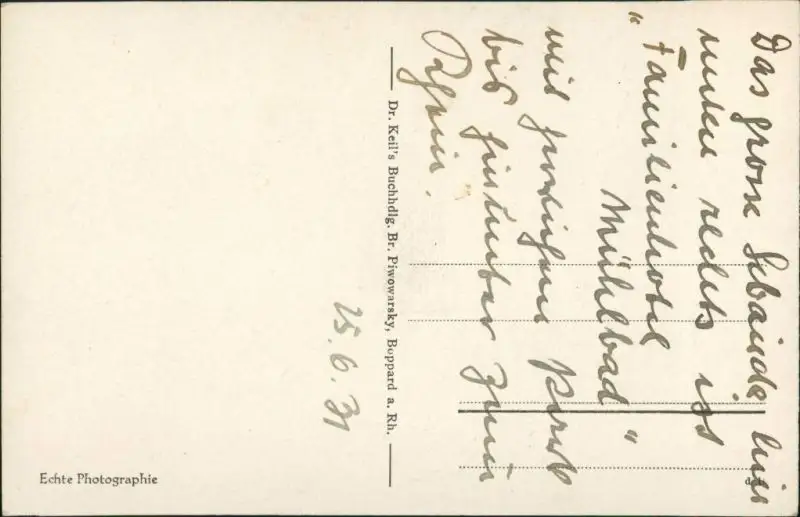 Das grosse Gebäude hier
unten rechts ist
"Familienhotel
Mühlbad"
mit herrlichem Park
bis hinunter zum
Rhein.
Dr. Keil's Buchhdlg. Br. Piwowarsky, Boppard a. Rh.
25.6.31
Echte Photographie